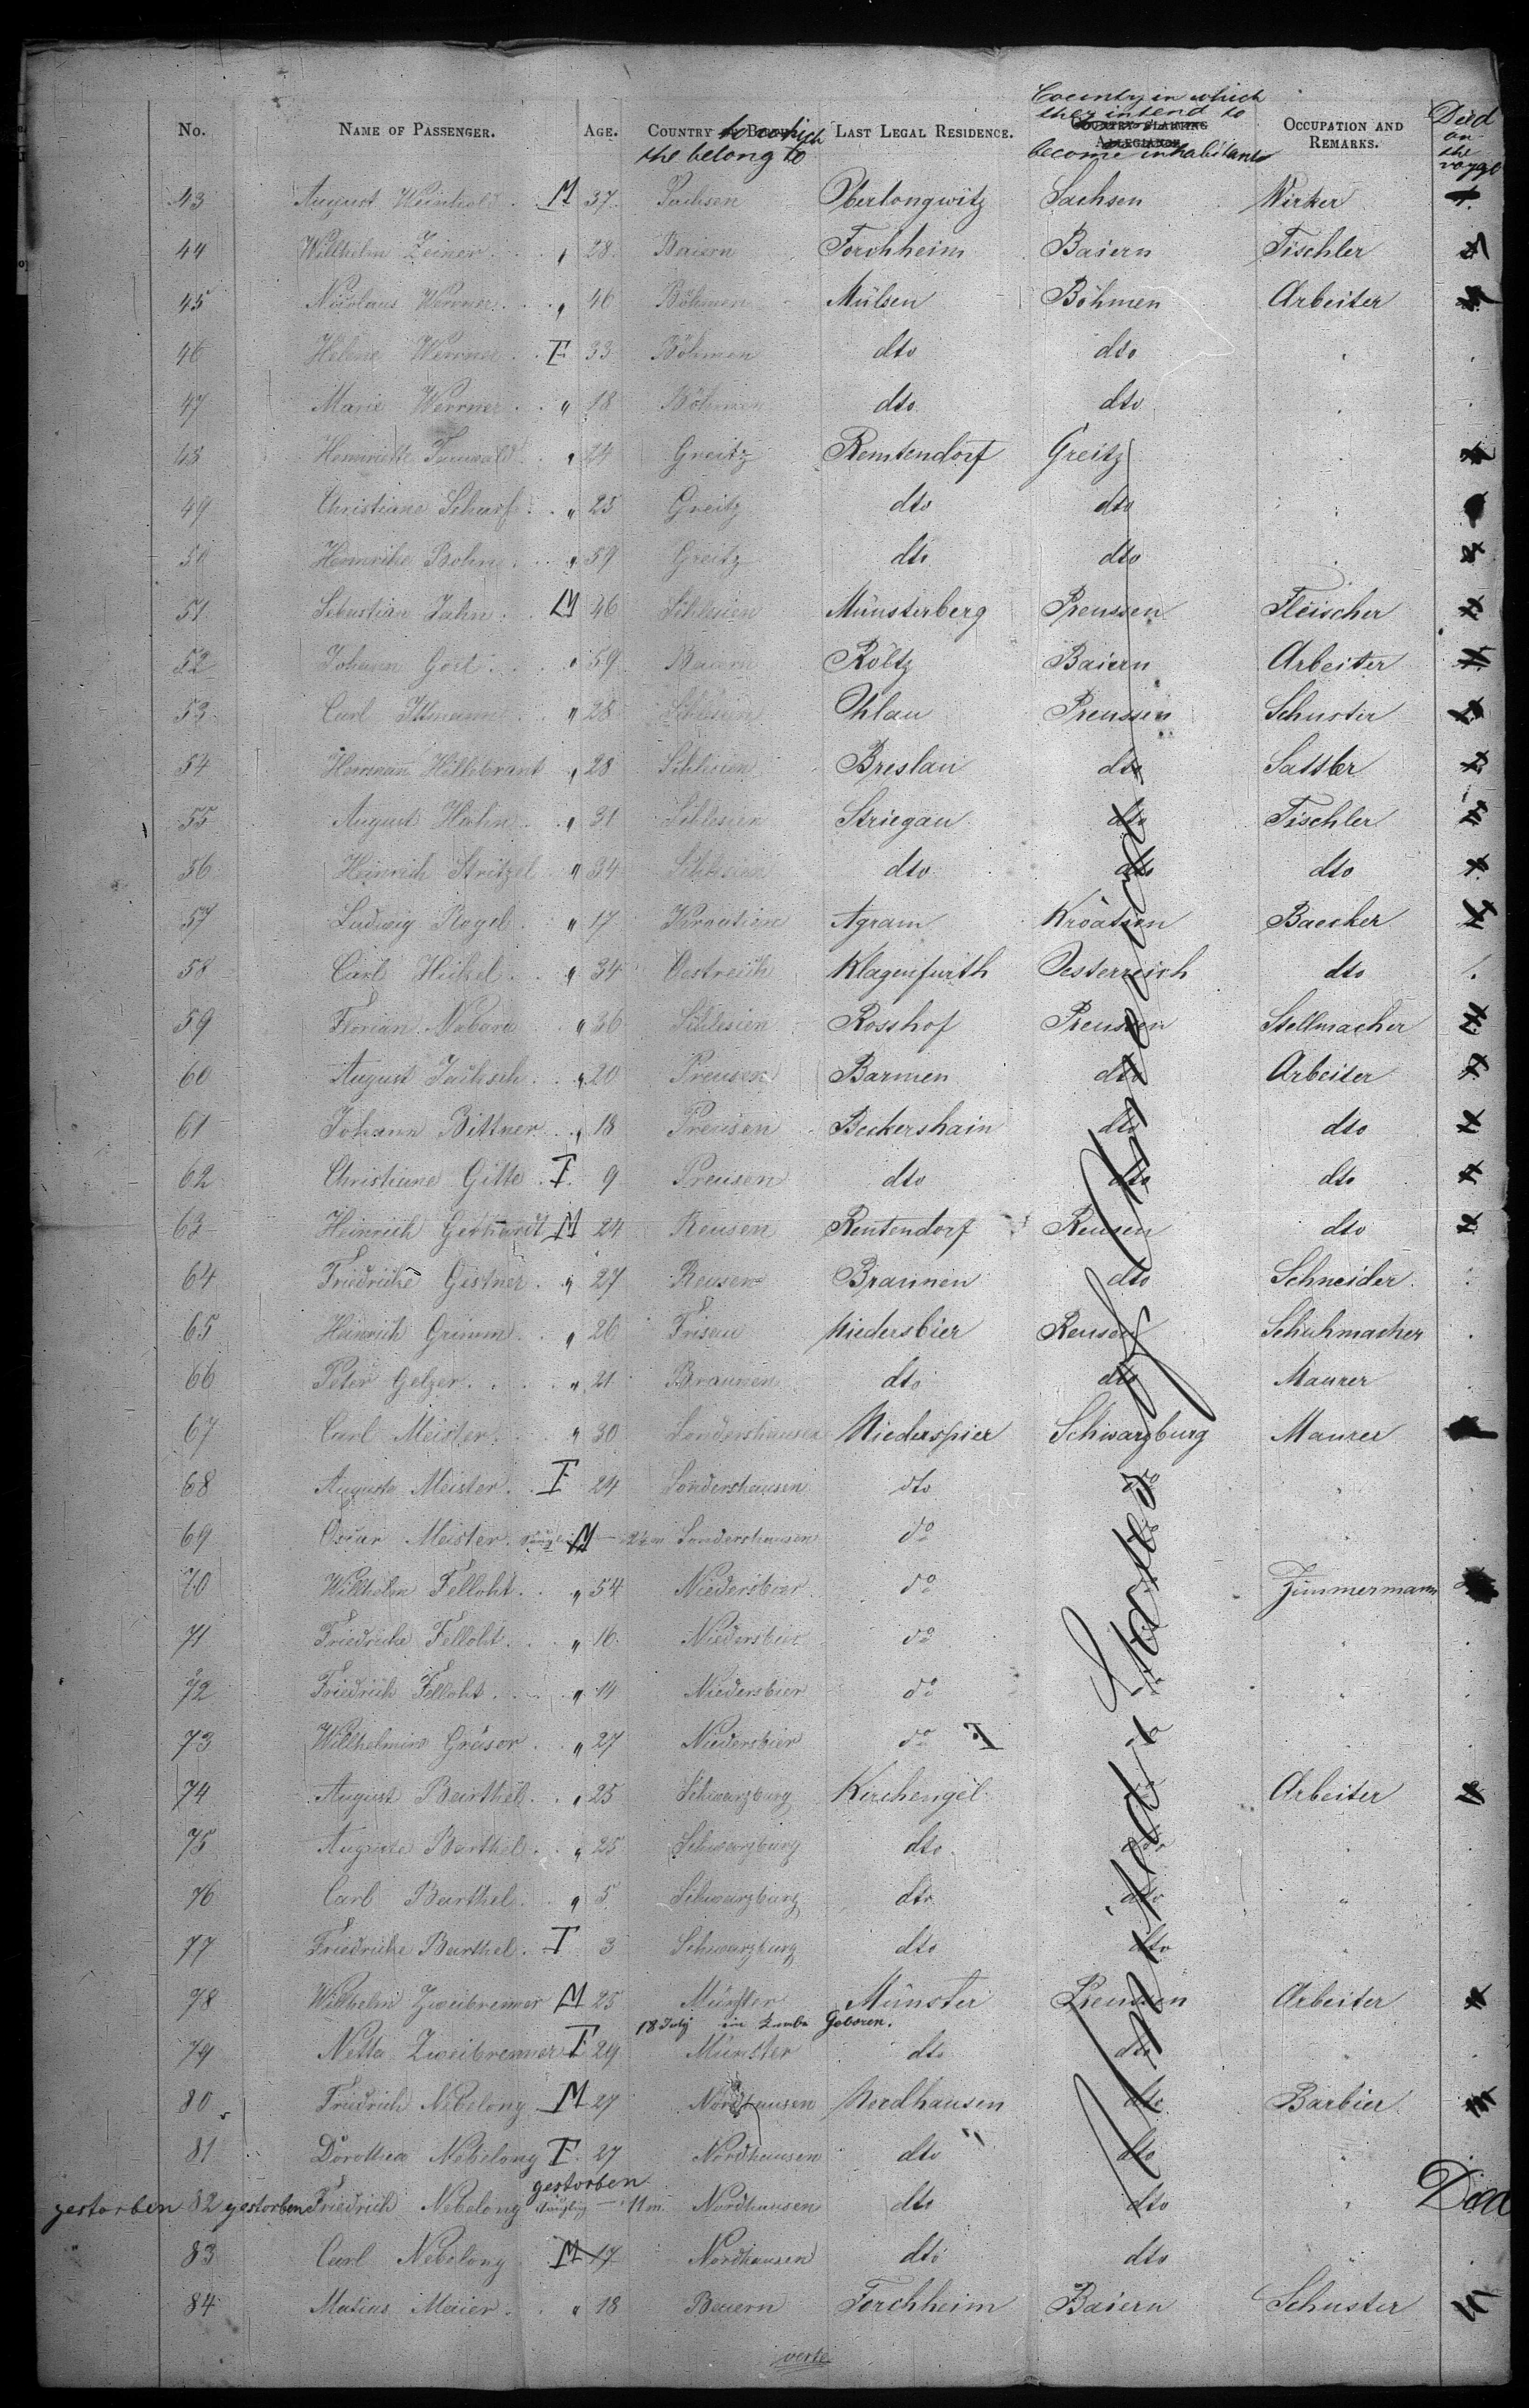 Country in which
they intend to
become inhabitants
No. Name of Passenger. Age. Country to which the belong to Last Legal Residence. Country Claiming Allegiance. Occupation and Remarks. Died on the voyage
43 August Weinhold M 37 Sachsen Oberlongwitz Sachsen Wirker
44 Willhelm Zeiner " 28 Baiern Forchheim Baiern Tischler
45 Nicolaus Werner " 46 Böhmen Mülsen Böhmen Arbeiter
46 Helene Werner F 33 Böhmen dto dto
47 Marie Werrner " 18 Böhmen dto dto
48 Henriette " 24 Greitz Remtendorf Greitz
49 Christiane Scharf " 25 Greitz dto dto
50 Böhm " 59 Greitz dto dto
51 Sebastian Jahn M 46 Schlesien Münsterberg Preussen Fleischer
52 Johann " 59 Baiern Röltz Baiern Arbeiter
53 Carl " 28 Schlesien Ohlau Preussen Schuster
54 Hermann Hillebrant " 28 Schlesien Breslau dto Sattler
55 August Hahn " 31 Schlesien Striegau dto Tischler
56 Heinrich Stritzel " 34 Schlesien dto dto dto
57 Ludwig Rogel " 17 Kroatien Agram Kroatien Baecker
58 Carl " 34 Oestreich Klagenfurth Oesterreich dto
59 Florian Nabara " 36 Schlesien Rosshof Preussen Stellmacher
60 August " 20 Preusen Barmen dto Arbeiter
61 Johann Bittner " 18 Preusen Beckershain dto dto
62 Christiane Gitte F 9 Preusen dto dto dto
63 Heinrich Gebhardt M 24 Reusen Rentendorf Reusen dto
64 Friedriche Gestner " 27 Reusen Braunen dto Schneider
65 Heinrich Grimm " 26 Friseu Niedersbier Reusen Schuhmacher
66 Peter Gelzer " 21 Braunen dto dto Maurer
67 Carl Meister " 30 Sondershausen Niederspier Schwarzburg Maurer
68 Auguste Meister F 24 Sondershausen dto do
69 Oscar Meister M Sondershausen do
70 Willhelm Felloht " 54 Niedersbier do Zimmermann
71 Friedriche Felloht " 16 Niedersbier do
72 Friedrich Felloht " 14 Niedersbier do
73 Willhelmine Gräser " 27 Niedersbier do F
74 August Barthel " 25 Schwarzburg Kirchengel Arbeiter
75 Auguste Barthel " 25 Schwarzburg dto dto
76 Carl Barthel " 5 Schwarzburg dto dto "
77 Friedriche Barthel F 3 Schwarzburg dto dto
78 Willhelm Zweibrenner M 25 Münster Münster Preussen Arbeiter
18 July ein Geboren.
79 Netta Zweibrenner F 29 Münster dto dto
80 Friedrich Nebelong M 27 Nordhausen Nordhausen dto Barbier
81 Dorothea Nebelong F 27 Nordhausen dto " dto
gestorben
gestorben 82 gestorben Friedrich Nebelong Säugling 11 m. Nordhausen dto dto Died
83 Carl Nebelong M 17 Nordhausen dto dto
84 Matius Meier " 18 Beuern Forchheim Baiern Schuster
United States of America
verte